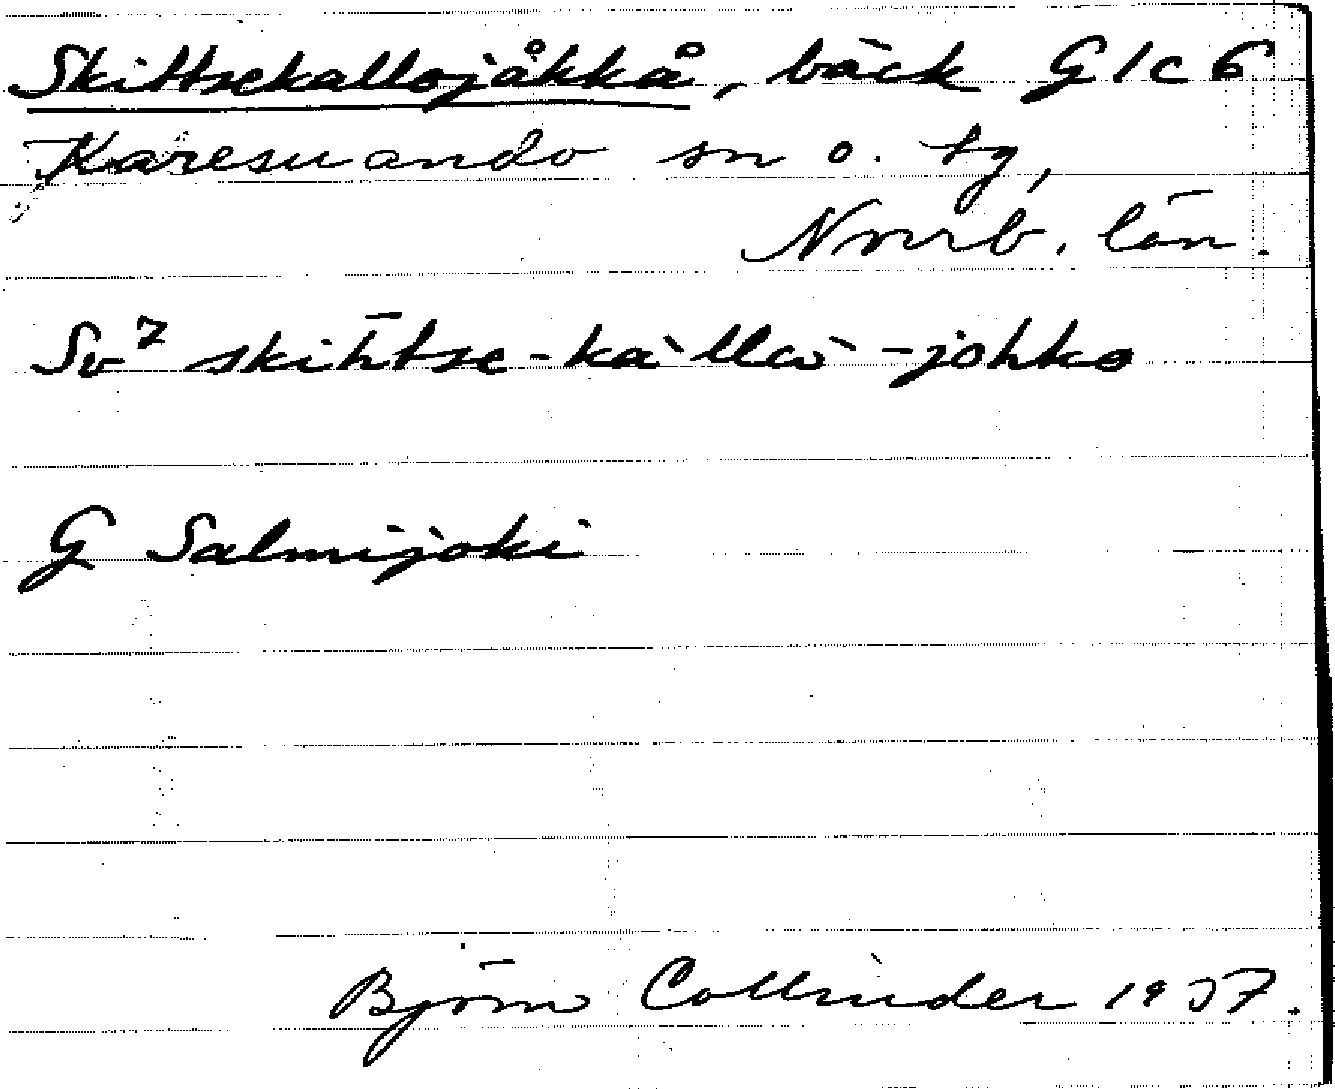 Skittsekallojåkkå, bäck G 1 c 6
Karesuando sn o. tg,
Norrb. län.
Sv⁷ skihtse-kàllà-johko
G Salmijoki
Björn Collinder 1957.